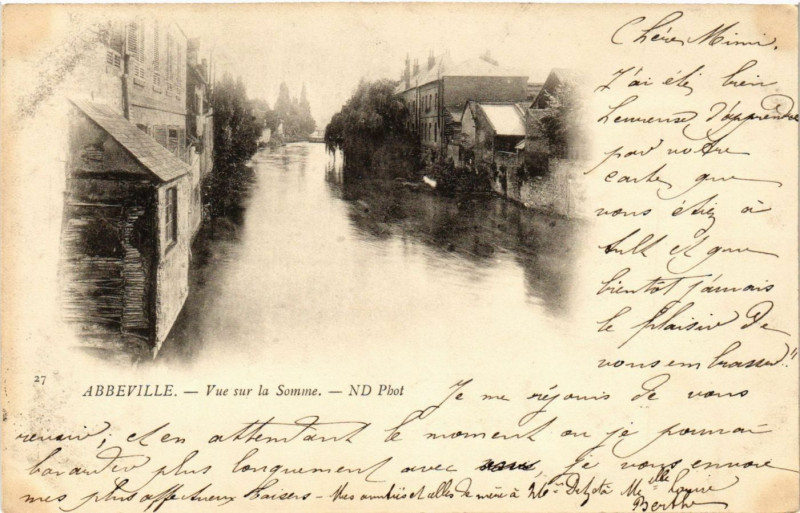 Chère Mimi.
J'ai été bien
heureuse d'apprendre
par votre
carte, que
vous étiez à
Ault et que
bientôt j'aurais
le plaisir de
vous embrasser!!
27
ABBEVILLE. — Vue sur la Somme. — ND Phot
Je me réjouis de vous
revoir; et en attendant le moment où je pourrai
bavarder plus longuement avec vous, je vous envoie
mes plus affectueux baisers - Mes amitiés et celles de mère à et à Melle
Berthe